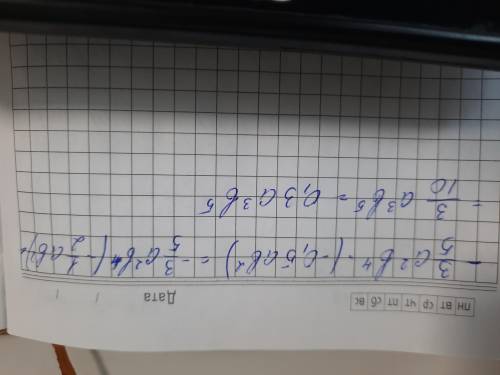 пн вт ср чт пт сб вс
Дата / /
-3/5 a²b⁴ · (-0,5ab²) = -3/5 a²b⁴ (-1/2 ab)=
= 3/10 a³b⁵ = 0,3a³b⁵